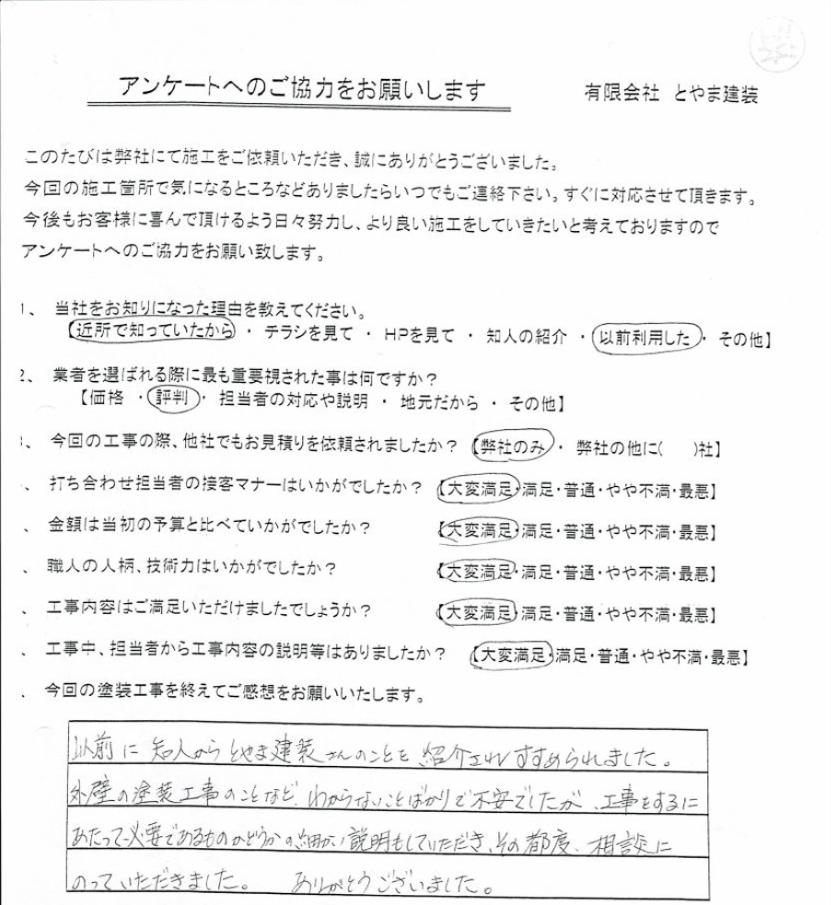 アンケートへのご協力をお願いします
有限会社 とやま建装
このたびは弊社にて施工をご依頼いただき、誠にありがとうございました。
今回の施工箇所で気になるところなどありましたらいつでもご連絡下さい。すぐに対応させて頂きます。
今後もお客様に喜んで頂けるよう日々努力し、より良い施工をしていきたいと考えておりますので
アンケートへのご協力をお願い致します。
1、 当社をお知りになった理由を教えてください。
【近所で知っていたから ・ チラシを見て ・ HPを見て ・ 知人の紹介 ・ 以前利用した ・ その他】
2、 業者を選ばれる際に最も重要視された事は何ですか?
【価格 ・ 評判 ・ 担当者の対応や説明 ・ 地元だから ・ その他】
、 今回の工事の際、他社でもお見積りを依頼されましたか? 【弊社のみ ・ 弊社の他に( )社】
、 打ち合わせ担当者の接客マナーはいかがでしたか? 【大変満足・満足・普通・やや不満・最悪】
、 金額は当初の予算と比べていかがでしたか? 【大変満足・満足・普通・やや不満・最悪】
、 職人の人柄、技術力はいかがでしたか? 【大変満足・満足・普通・やや不満・最悪】
、 工事内容はご満足いただけましたでしょうか? 【大変満足・満足・普通・やや不満・最悪】
、 工事中、担当者から工事内容の説明等はありましたか? 【大変満足・満足・普通・やや不満・最悪】
、 今回の塗装工事を終えてご感想をお願いいたします。
以前に 知人から とやま建装さんのことを 紹介され すすめられました。
外壁の塗装工事のことなど、わからないことばかりで不安でしたが、工事をするに
あたって必要であるものかどうかの細かい説明もしていただき、その都度、相談に
のっていただきました。 ありがとうございました。